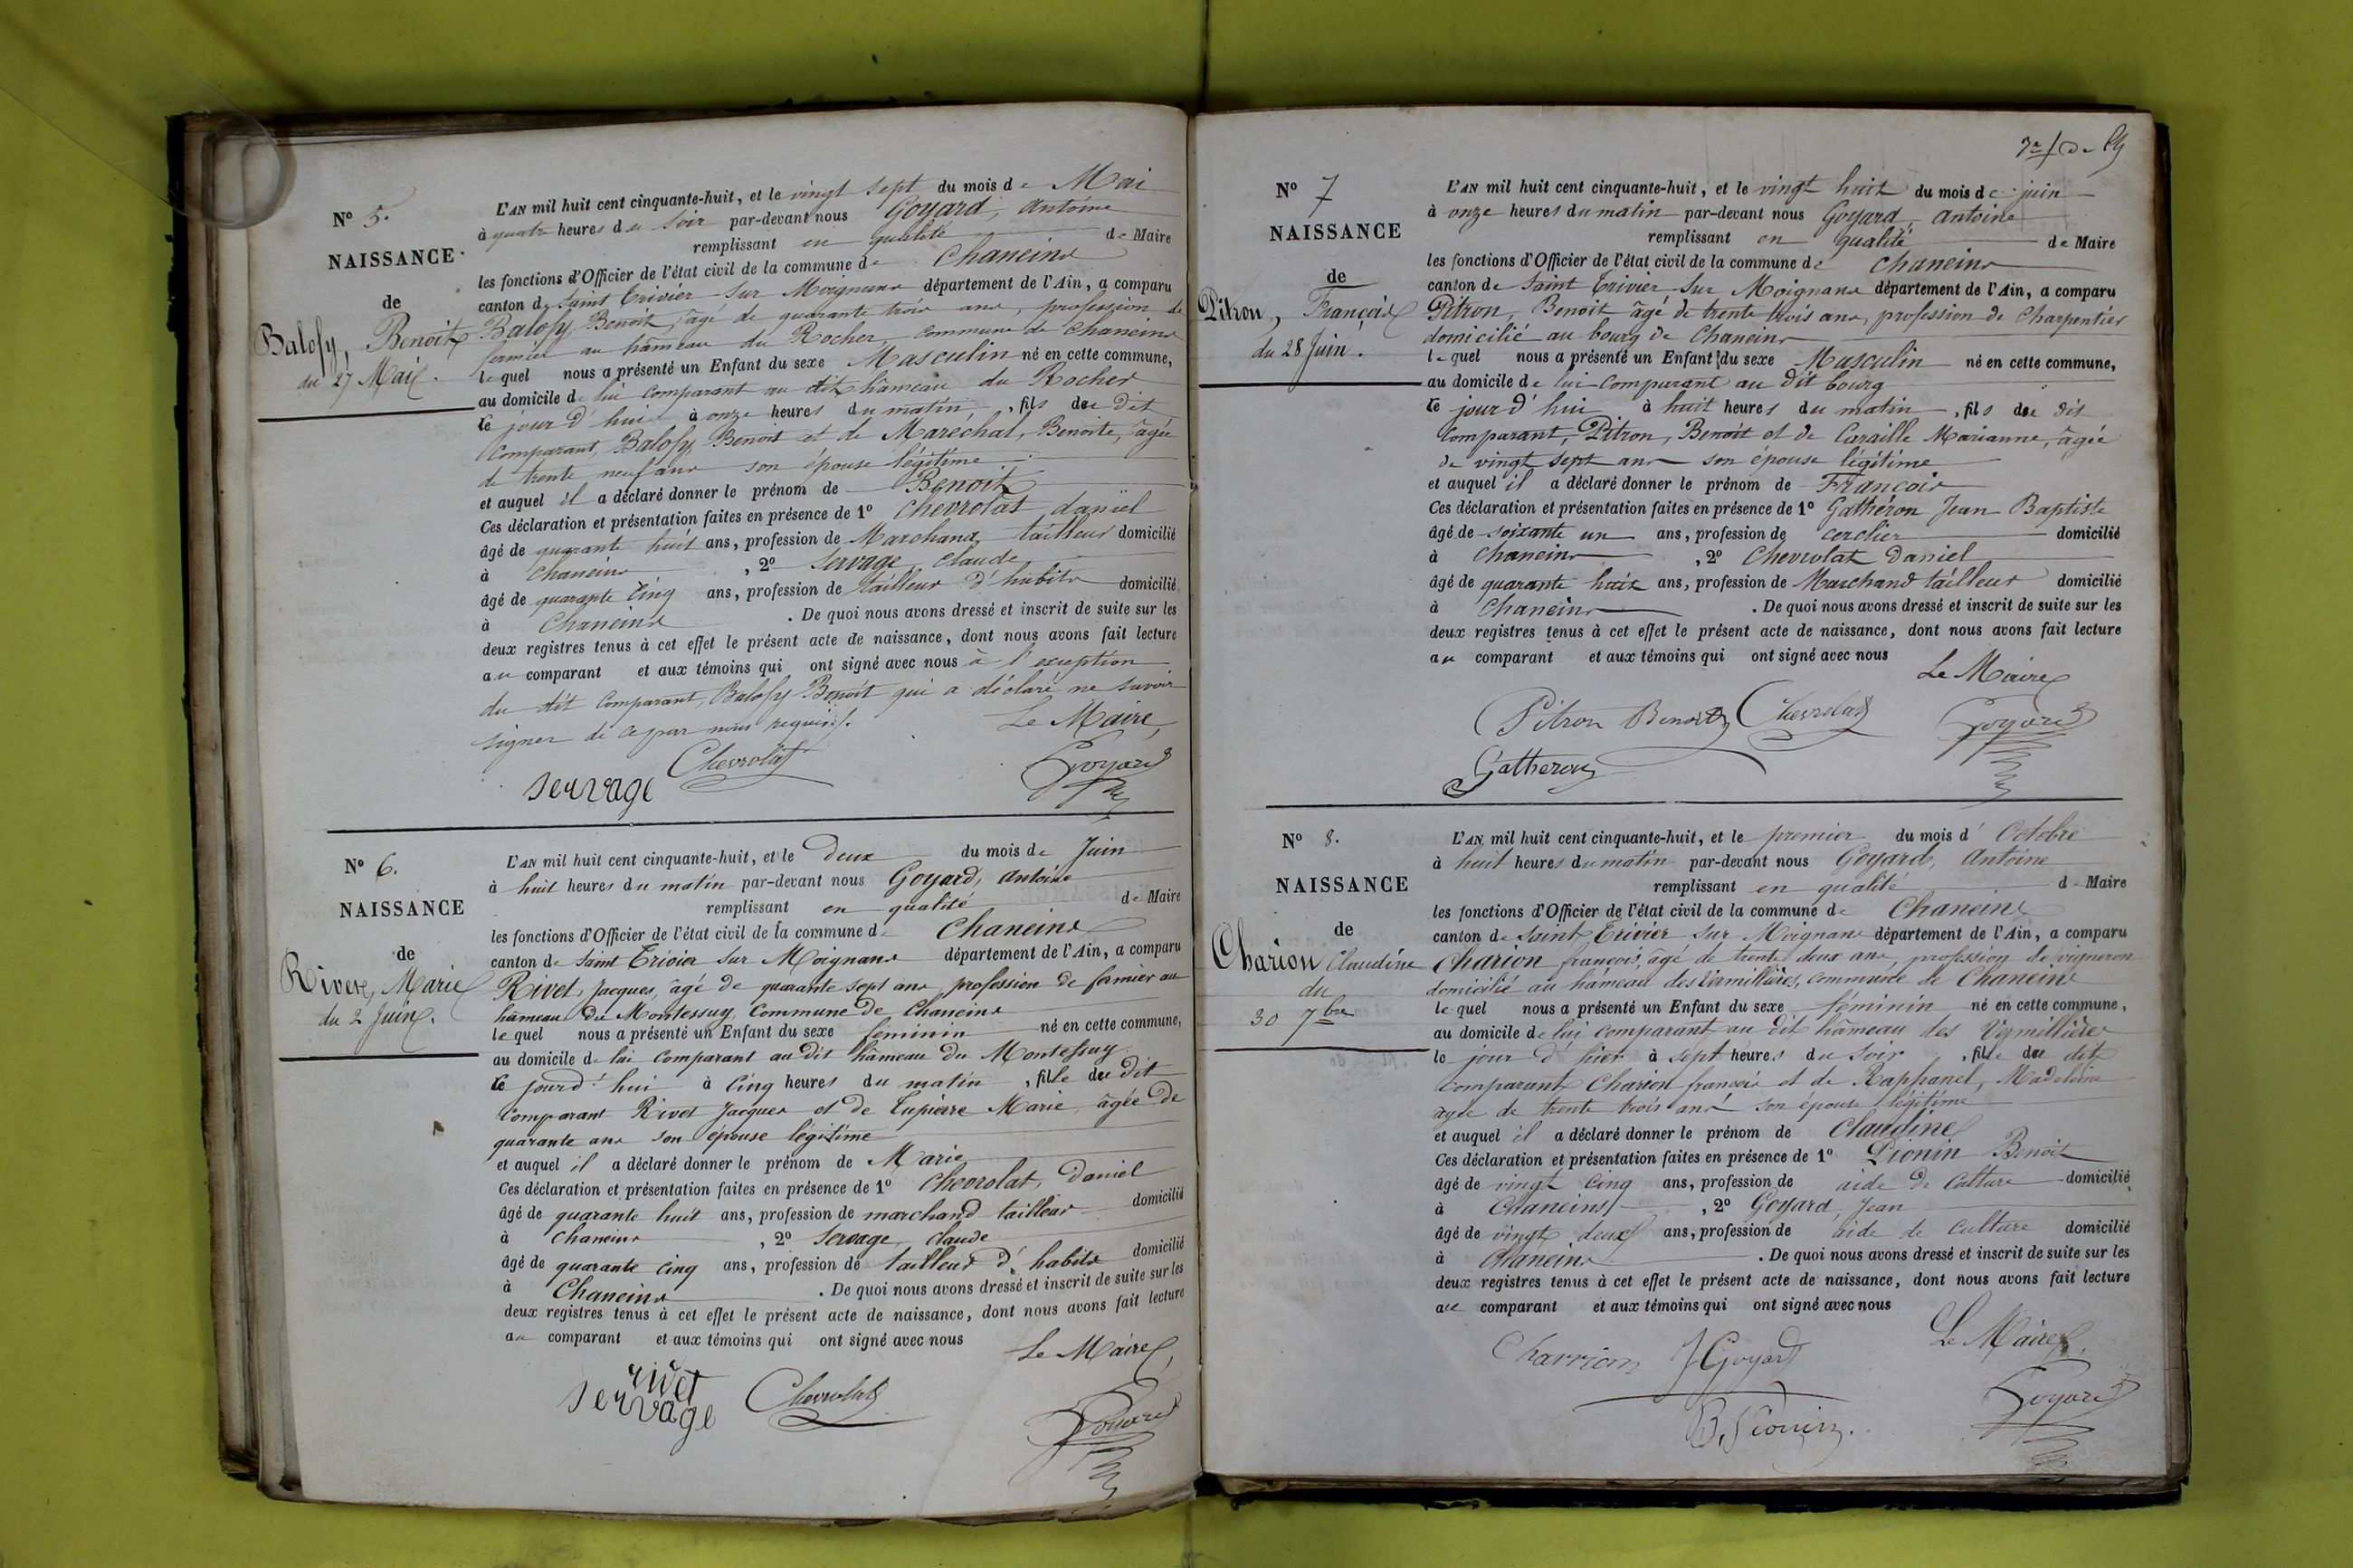 N° 5.
NAISSANCE
de
Balofy, Benoit
du 27 Mai.
L'AN mil huit cent cinquante-huit, et le vingt sept du mois de Mai
à quatre heures du soir par-devant nous Goyard, Antoine
remplissant en qualité de Maire
les fonctions d'Officier de l'état civil de la commune de Chaneins
canton de Saint Trivier sur Moignans département de l'Ain, a comparu
Balofy Benoit, âgé de quarante trois ans, profession de
fermier au hâmeau du Rocher, commune de Chaneins
lequel nous a présenté un Enfant du sexe Masculin né en cette commune,
au domicile de lui comparant au dit hâmeau du Rocher
le jour d'hui à onze heures du matin, fils du dit
comparant, Balofy Benoit et de Marechal, Benoite, âgée
de trente neuf ans son épouse légitime
et auquel il a déclaré donner le prénom de Benoit
Ces déclaration et présentation faites en présence de 1° Chevrolat daniel
âgé de quarante huit ans, profession de Marchand tailleur domicilié
à Chaneins, 2° Servage, Claude
âgé de quarante cinq ans, profession de tailleur d'habits domicilié
à Chaneins. De quoi nous avons dressé et inscrit de suite sur les
deux registres tenus à cet effet le présent acte de naissance, dont nous avons fait lecture
au comparant et aux témoins qui ont signé avec nous à l'exception
du dit comparant, Balofy Benoit qui a déclaré ne savoir
signer de ce par nous requis.
Le Maire,
Chevrolat
servage
Goyard
N° 6.
NAISSANCE
de
Rivet, Marie
du 2 Juin.
L'AN mil huit cent cinquante-huit, et le deux du mois de Juin
à huit heures du matin par-devant nous Goyard, Antoine
remplissant en qualité de Maire
les fonctions d'Officier de l'état civil de la commune de Chaneins
canton de Saint Trivier sur Moignans département de l'Ain, a comparu
Rivet, Jacques, âgé de quarante sept ans profession de fermier au
hâmeau du Montessuy, Commune de Chaneins
lequel nous a présenté un Enfant du sexe féminin né en cette commune,
au domicile de lui comparant au dit hâmeau du Montessuy
le jour d'hui à cinq heures du matin, fille du dit
comparant Rivet Jacques et de Tupierre Marie âgée de
quarante ans son épouse légitime
et auquel il a déclaré donner le prénom de Marie
Ces déclaration et présentation faites en présence de 1° Chevrolat, Daniel
âgé de quarante huit ans, profession de marchand tailleur domicilié
à Chaneins, 2° Servage, Claude
âgé de quarante cinq ans, profession de tailleur d'habits domicilié
à Chaneins. De quoi nous avons dressé et inscrit de suite sur les
deux registres tenus à cet effet le présent acte de naissance, dont nous avons fait lecture
au comparant et aux témoins qui ont signé avec nous
Le Maire,
rivet
servage
Chevrolat
Goyard
N° 7
NAISSANCE
de
Pitron, François
du 28 Juin.
L'AN mil huit cent cinquante-huit, et le vingt huit du mois de juin
à onze heures du matin par-devant nous Goyard, Antoine
remplissant en qualité de Maire
les fonctions d'Officier de l'état civil de la commune de Chaneins
canton de Saint Trivier sur Moignans département de l'Ain, a comparu
Pitron, Benoit âgé de trente trois ans, profession de Charpentier
domicilié au bourg de Chaneins
lequel nous a présenté un Enfant du sexe Masculin né en cette commune,
au domicile de lui comparant au dit bourg
le jour d'hui à huit heures du matin, fils du dit
comparant, Pitron, Benoit et de Caraille Marianne, âgée
de vingt sept ans son épouse légitime
et auquel il a déclaré donner le prénom de François
Ces déclaration et présentation faites en présence de 1° Gathéron Jean Baptiste
âgé de soixante un ans, profession de cerclier domicilié
à Chaneins, 2° Chevrolat Daniel
âgé de quarante huit ans, profession de Marchand tailleur domicilié
à Chaneins. De quoi nous avons dressé et inscrit de suite sur les
deux registres tenus à cet effet le présent acte de naissance, dont nous avons fait lecture
au comparant et aux témoins qui ont signé avec nous
Le Maire
Pitron Benoit Chevrolat Goyard
Gatheron
N° 8.
NAISSANCE
de
Charion Claudine
du
30 7bre
L'AN mil huit cent cinquante-huit, et le premier du mois d'Octobre
à huit heures du matin par-devant nous Goyard, Antoine
remplissant en qualité de Maire
les fonctions d'Officier de l'état civil de la commune de Chaneins
canton de Saint Trivier sur Moignans département de l'Ain, a comparu
Charion françois, âgé de trente deux ans, profession de vigneron
domicilié au hâmeau des Vermillières, commune de Chaneins
lequel nous a présenté un Enfant du sexe féminin né en cette commune,
au domicile de lui comparant au dit hâmeau des Vermillières
le jour d'hier à sept heures du soir, fille du dit
comparant Charion françois et de Rapphanel, Madeleine
agée de trente trois ans son épouse légitime
et auquel il a déclaré donner le prénom de Claudine
Ces déclaration et présentation faites en présence de 1° Pionin Benoit
âgé de vingt cinq ans, profession de aide de Culture domicilié
à Chaneins, 2° Goyard, Jean
âgé de vingt deux ans, profession de aide de culture domicilié
à Chaneins. De quoi nous avons dressé et inscrit de suite sur les
deux registres tenus à cet effet le présent acte de naissance, dont nous avons fait lecture
au comparant et aux témoins qui ont signé avec nous
Le Maire,
Charrion J Goyard
Goyard